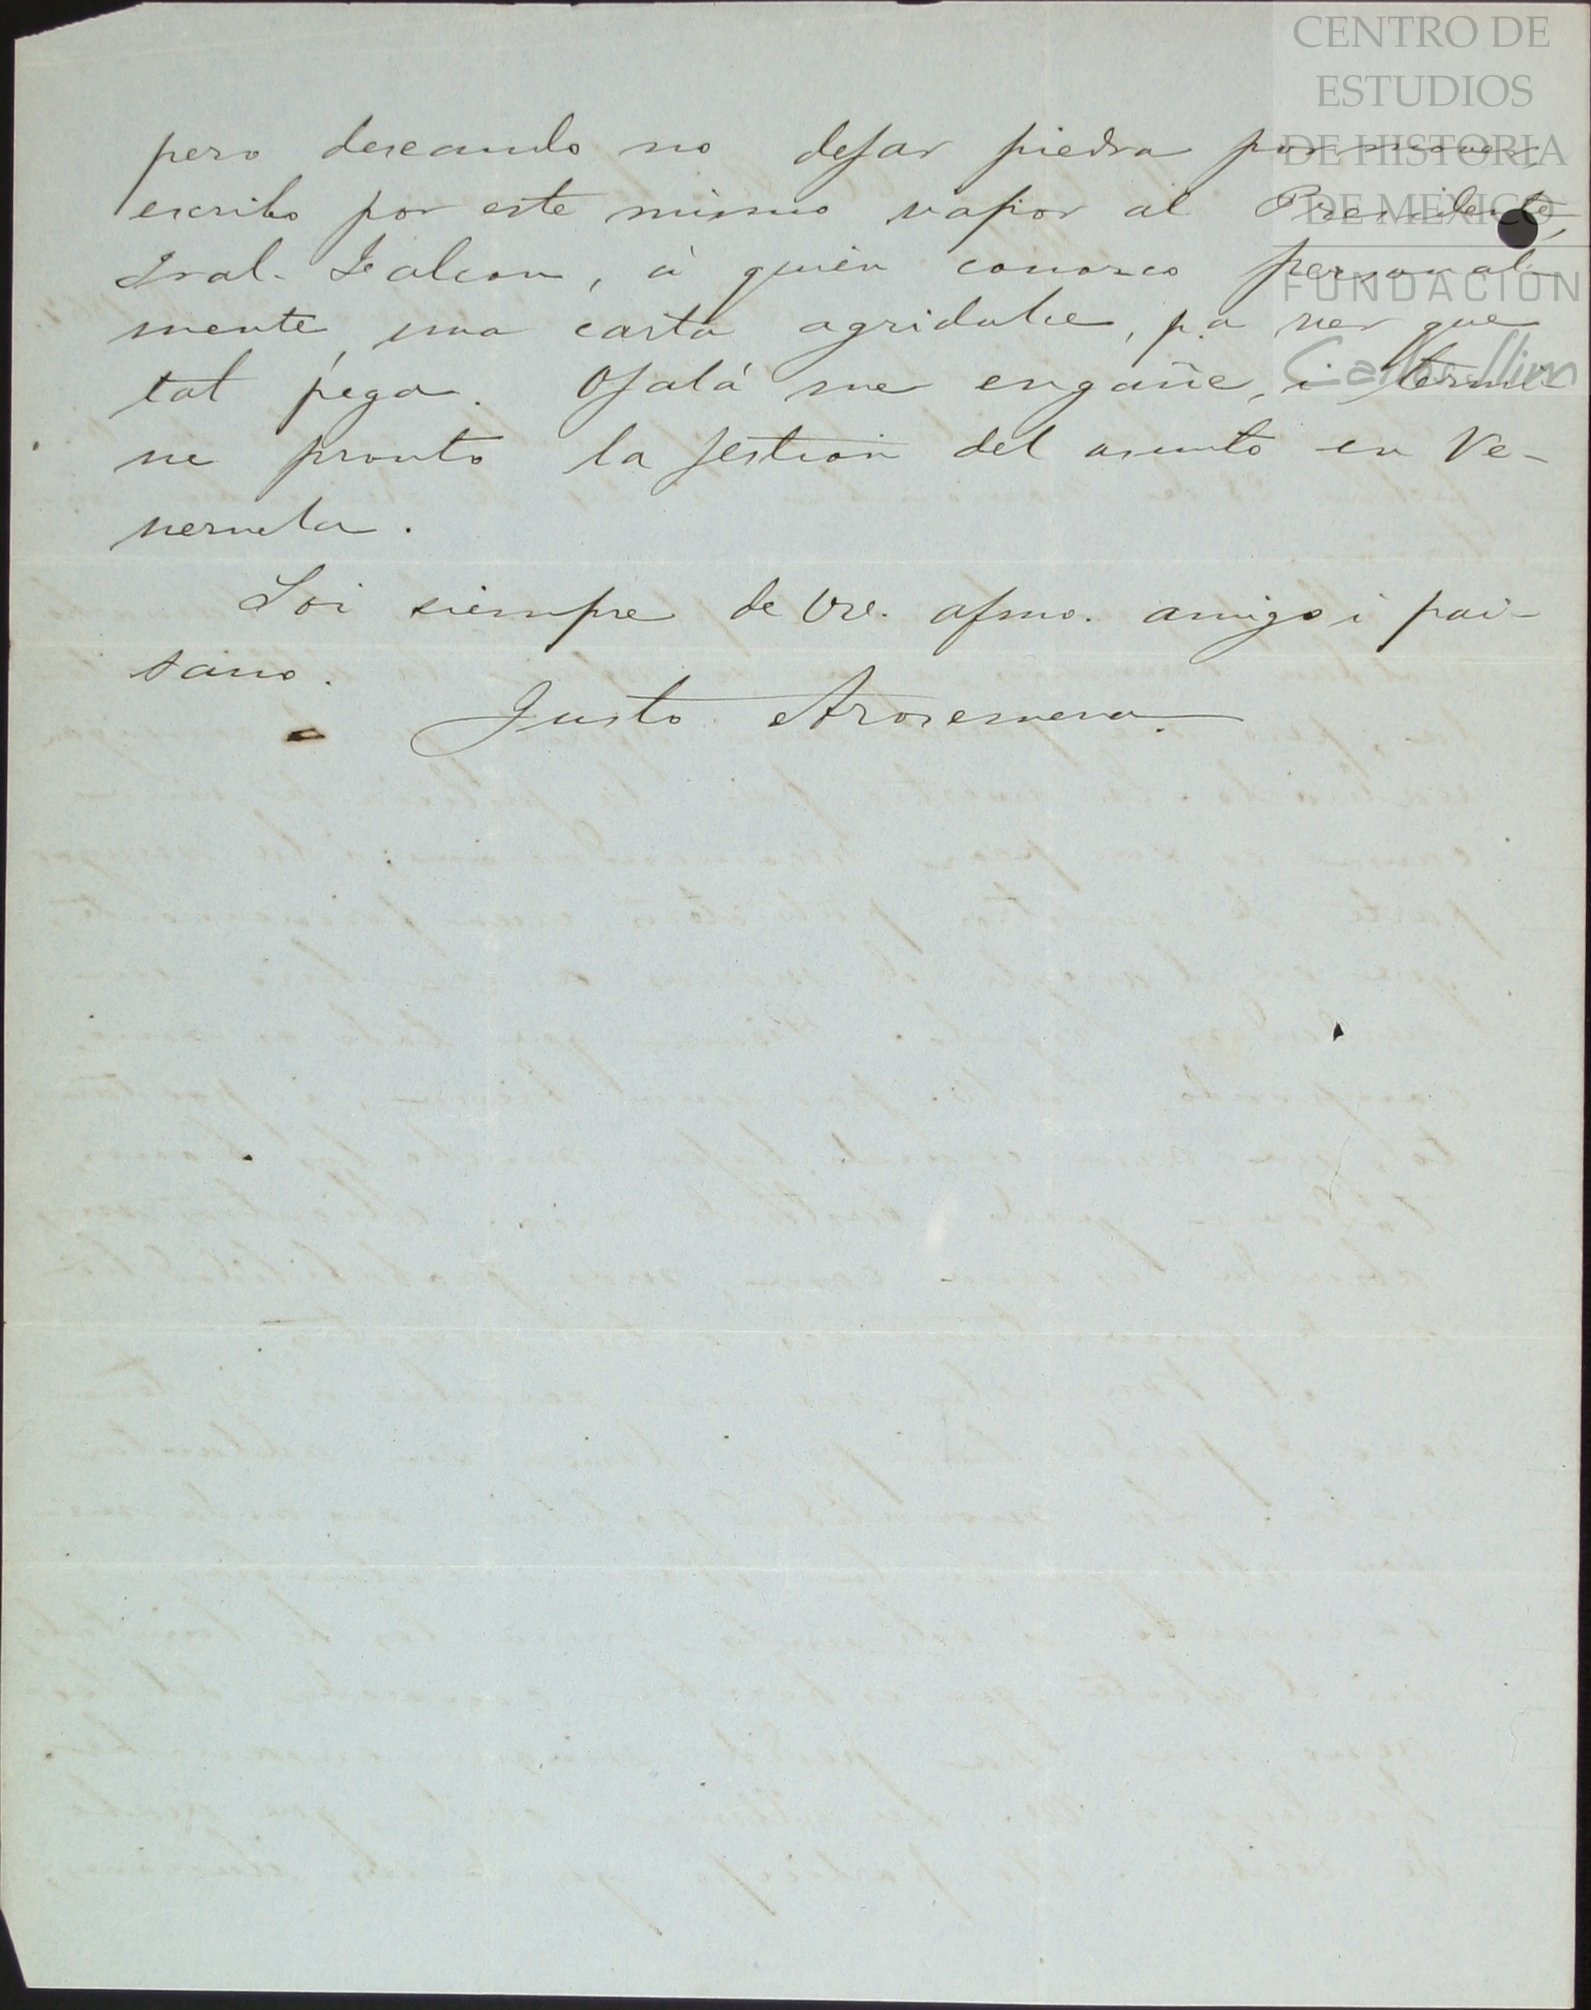 CENTRO DE
ESTUDIOS
DE HISTORIA
DE MEXICO
FUNDACION
Carlos Slim
pero deseando no dejar piedra por mover,
escribo por este mismo vapor al Presidente,
Jral. Falcon, á quien conozco personal-
mente, una carta agridulce, pa ver que
tal pega. Ojalá me engañe, i termi-
ne pronto la jestion del asunto en Ve-
nezuela.
Soi siempre de Ud. afmo. amigo i pai-
sano.
Justo Arosemena.